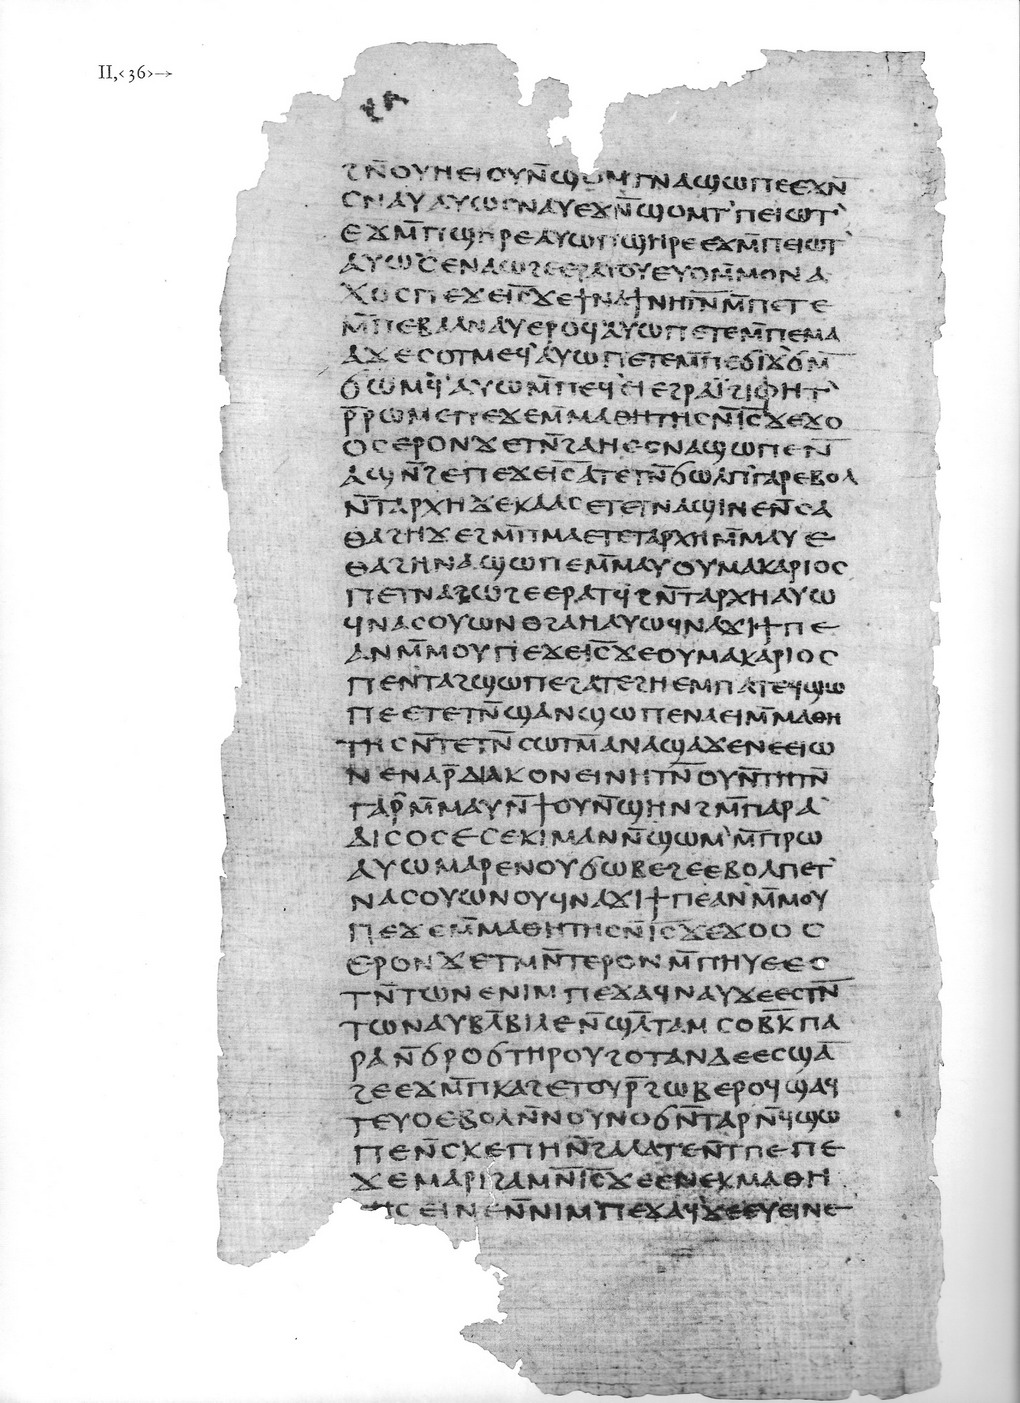 II,‹36›→
ϩⲛ̄ⲟⲩⲏⲉⲓⲟⲩⲛ̄ϣⲟⲙⲧⲛⲁϣⲱⲡⲉⲉϫⲛ̄
ⲥⲛⲁⲩⲁⲩⲱⲥⲛⲁⲩⲉϫⲛ̄ϣⲟⲙⲧ'ⲡⲉⲓⲱⲧ'
ⲉϫⲙ̄ⲡϣⲏⲣⲉⲁⲩⲱⲡϣⲏⲣⲉⲉϫⲙ̄ⲡⲉⲓⲱⲧ'
ⲁⲩⲱⲥⲉⲛⲁⲱϩⲉⲉⲣⲁⲧⲟⲩⲉⲩⲟⲙ̄ⲙⲟⲛⲁ
ⲭⲟⲥⲡⲉϫⲉⲓ̄ⲥ̄ϫⲉϯⲛⲁϯⲛⲏⲧⲛ̄ⲙ̄ⲡⲉⲧⲉ
ⲙ̄ⲡⲉⲃⲁⲗⲛⲁⲩⲉⲣⲟϥ'ⲁⲩⲱⲡⲉⲧⲉⲙ̄ⲡⲉⲙⲁ
ⲁϫⲉⲥⲟⲧⲙⲉϥ'ⲁⲩⲱⲡⲉⲧⲉⲙ̄ⲡⲉϭⲓϫ'ϭⲙ̄
ϭⲱⲙϥ'ⲁⲩⲱⲙ̄ⲡⲉϥ'ⲉⲓⲉϩⲣⲁⲓ̈ϩⲓⲫⲏⲧ'
ⲣ̄ⲣⲱⲙⲉⲡⲉϫⲉⲙ̄ⲙⲁⲑⲏⲧⲏⲥⲛ̄ⲓ̄ⲥ̄ϫⲉϫⲟ
ⲟⲥⲉⲣⲟⲛ'ϫⲉⲧⲛ̄ϩⲁⲏⲉⲥⲛⲁϣⲱⲡⲉⲛ̄
ⲁϣⲛ̄ϩⲉⲡⲉϫⲉⲓ̄ⲥ̄ⲁⲧⲉⲧⲛ̄ϭⲱⲗⲡ'ⲅⲁⲣⲉⲃⲟⲗ
ⲛ̄ⲧⲁⲣⲭⲏϫⲉⲕⲁⲁⲥⲉⲧⲉⲧⲛⲁϣⲓⲛⲉⲛ̄ⲥⲁ
ⲑⲁϩⲏϫⲉϩⲙ̄ⲡⲙⲁⲉⲧⲉⲧⲁⲣⲭⲏⲙ̄ⲙⲁⲩⲉ
ⲑⲁϩⲏⲛⲁϣⲱⲡⲉⲙ̄ⲙⲁⲩⲟⲩⲙⲁⲕⲁⲣⲓⲟⲥ
ⲡⲉⲧⲛⲁϩⲱϩⲉⲉⲣⲁⲧϥ'ϩⲛ̄ⲧⲁⲣⲭⲏⲁⲩⲱ
ϥⲛⲁⲥⲟⲩⲱⲛⲑϩⲁⲏⲁⲩⲱϥⲛⲁϫⲓϯⲡⲉ
ⲁⲛⲙ̄ⲙⲟⲩⲡⲉϫⲉⲓ̄ⲥ̄ϫⲉⲟⲩⲙⲁⲕⲁⲣⲓⲟⲥ
ⲡⲉⲛⲧⲁϩϣⲱⲡⲉϩⲁⲧⲉϩⲏⲉⲙⲡⲁⲧⲉϥϣⲱ
ⲡⲉⲉⲧⲉⲧⲛ̄ϣⲁⲛϣⲱⲡⲉⲛⲁⲉⲓⲙ̄ⲙⲁⲑⲏ
ⲧⲏⲥⲛ̄ⲧⲉⲧⲛ̄ⲥⲱⲧⲙ̄ⲁⲛⲁϣⲁϫⲉⲛⲉⲉⲓⲱ
ⲛⲉⲛⲁⲣ̄ⲇⲓⲁⲕⲟⲛⲉⲓⲛⲏⲧⲛ̄ⲟⲩⲛ̄ⲧⲏⲧⲛ̄
ⲅⲁⲣ'ⲙ̄ⲙⲁⲩⲛ̄ϯⲟⲩⲛ̄ϣⲏⲛϩⲙ̄ⲡⲁⲣⲁ'
ⲇⲓⲥⲟⲥⲉⲥⲉⲕⲓⲙⲁⲛⲛ̄ϣⲱⲙ'ⲙ̄ⲡⲣⲱ
ⲁⲩⲱⲙⲁⲣⲉⲛⲟⲩϭⲱⲃⲉϩⲉⲉⲃⲟⲗⲡⲉⲧ'
ⲛⲁⲥⲟⲩⲱⲛⲟⲩϥⲛⲁϫⲓϯⲡⲉⲁⲛ'ⲙ̄ⲙⲟⲩ
ⲡⲉϫⲉⲙ̄ⲙⲁⲑⲏⲧⲏⲥⲛ̄ⲓ̄ⲥ̄ϫⲉϫⲟⲟⲥ
ⲉⲣⲟⲛ'ϫⲉⲧⲙⲛ̄ⲧⲉⲣⲟⲛⲙ̄ⲡⲏⲩⲉⲉⲥ
ⲧⲛ̄ⲧⲱⲛⲉⲛⲓⲙⲡⲉϫⲁϥⲛⲁⲩϫⲉⲉⲥⲧⲛ̄
ⲧⲱⲛⲁⲩⲃⲗ̄ⲃⲓⲗⲉⲛ̄ϣⲗ̄ⲧⲁⲙⲥⲟⲃⲕ̄ⲡⲁ
ⲣⲁⲛ̄ϭⲣⲟϭⲧⲏⲣⲟⲩϩⲟⲧⲁⲛⲇⲉⲉⲥϣⲁ
ϩⲉⲉϫⲙ̄ⲡⲕⲁϩⲉⲧⲟⲩⲣ̄ϩⲱⲃⲉⲣⲟϥϣⲁϥ
ⲧⲉⲩⲟⲉⲃⲟⲗⲛ̄ⲛⲟⲩⲛⲟϭⲛ̄ⲧⲁⲣⲛ̄ϥϣⲱ
ⲡⲉⲛ̄ⲥⲕⲉⲡⲏⲛ̄ϩⲁⲗⲁⲧⲉⲛ̄ⲧⲡⲉⲡⲉ
ϫⲉⲙⲁⲣⲓϩⲁⲙⲛ̄ⲓ̄ⲥ̄ϫⲉⲉⲛⲉⲕⲙⲁⲑⲏ
ⲏⲥⲉⲓⲛⲉⲛ̄ⲛⲓⲙ'ⲡⲉϫⲁϥ'ϫⲉⲉⲩⲉⲓⲛⲉ